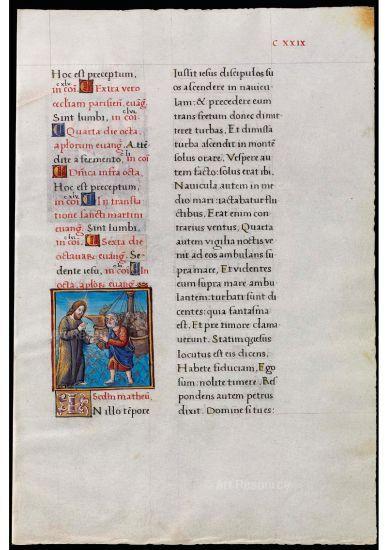 C XXIX
Hoc est preceptum,
cxlv
in cõi. Extra vero
eccliam parisien̄. euãg.
Sint lumbi, in coi.
Quarta die octa.
aplorum euang. Attẽ
dite a fermento, in coi
Dñica infra octa.
Hoc est preceptum,
cxiv.
in coi In transla
tione sancti martini
euang. Sint lumbi,
in coi. Sexta die
octauaR euang. Se
dente iesu, in coi In
octa. aplorR euang
Secdm matheũ
IN illo tẽpore
Iussit iesus discipulos su
os ascendere in nauicu
lam: & precedere eum
trans fretum donec dimit
teret turbas, Et dimissa
turba ascendit in montẽ
solus orare. Vespere au
tem facto: solus erat ibi.
Nauicula autem in me
dio mari iactabatur flu
ctibus, Erat enim con
trarius ventus, Quarta
autem vigilia noctis ve
nit ad eos ambulans su
pra mare, Et videntes
eum supra mare ambu
lantem: turbati sunt di
centes: quia fantasma
est. Et pre timore clama
uerunt. Statimq₃ iesus
locutus est eis dicens,
Habete fiduciam, Ego
sum: nolite timere. Res
pondens autem petrus
dixit. Domine si tu es:
Art Resource